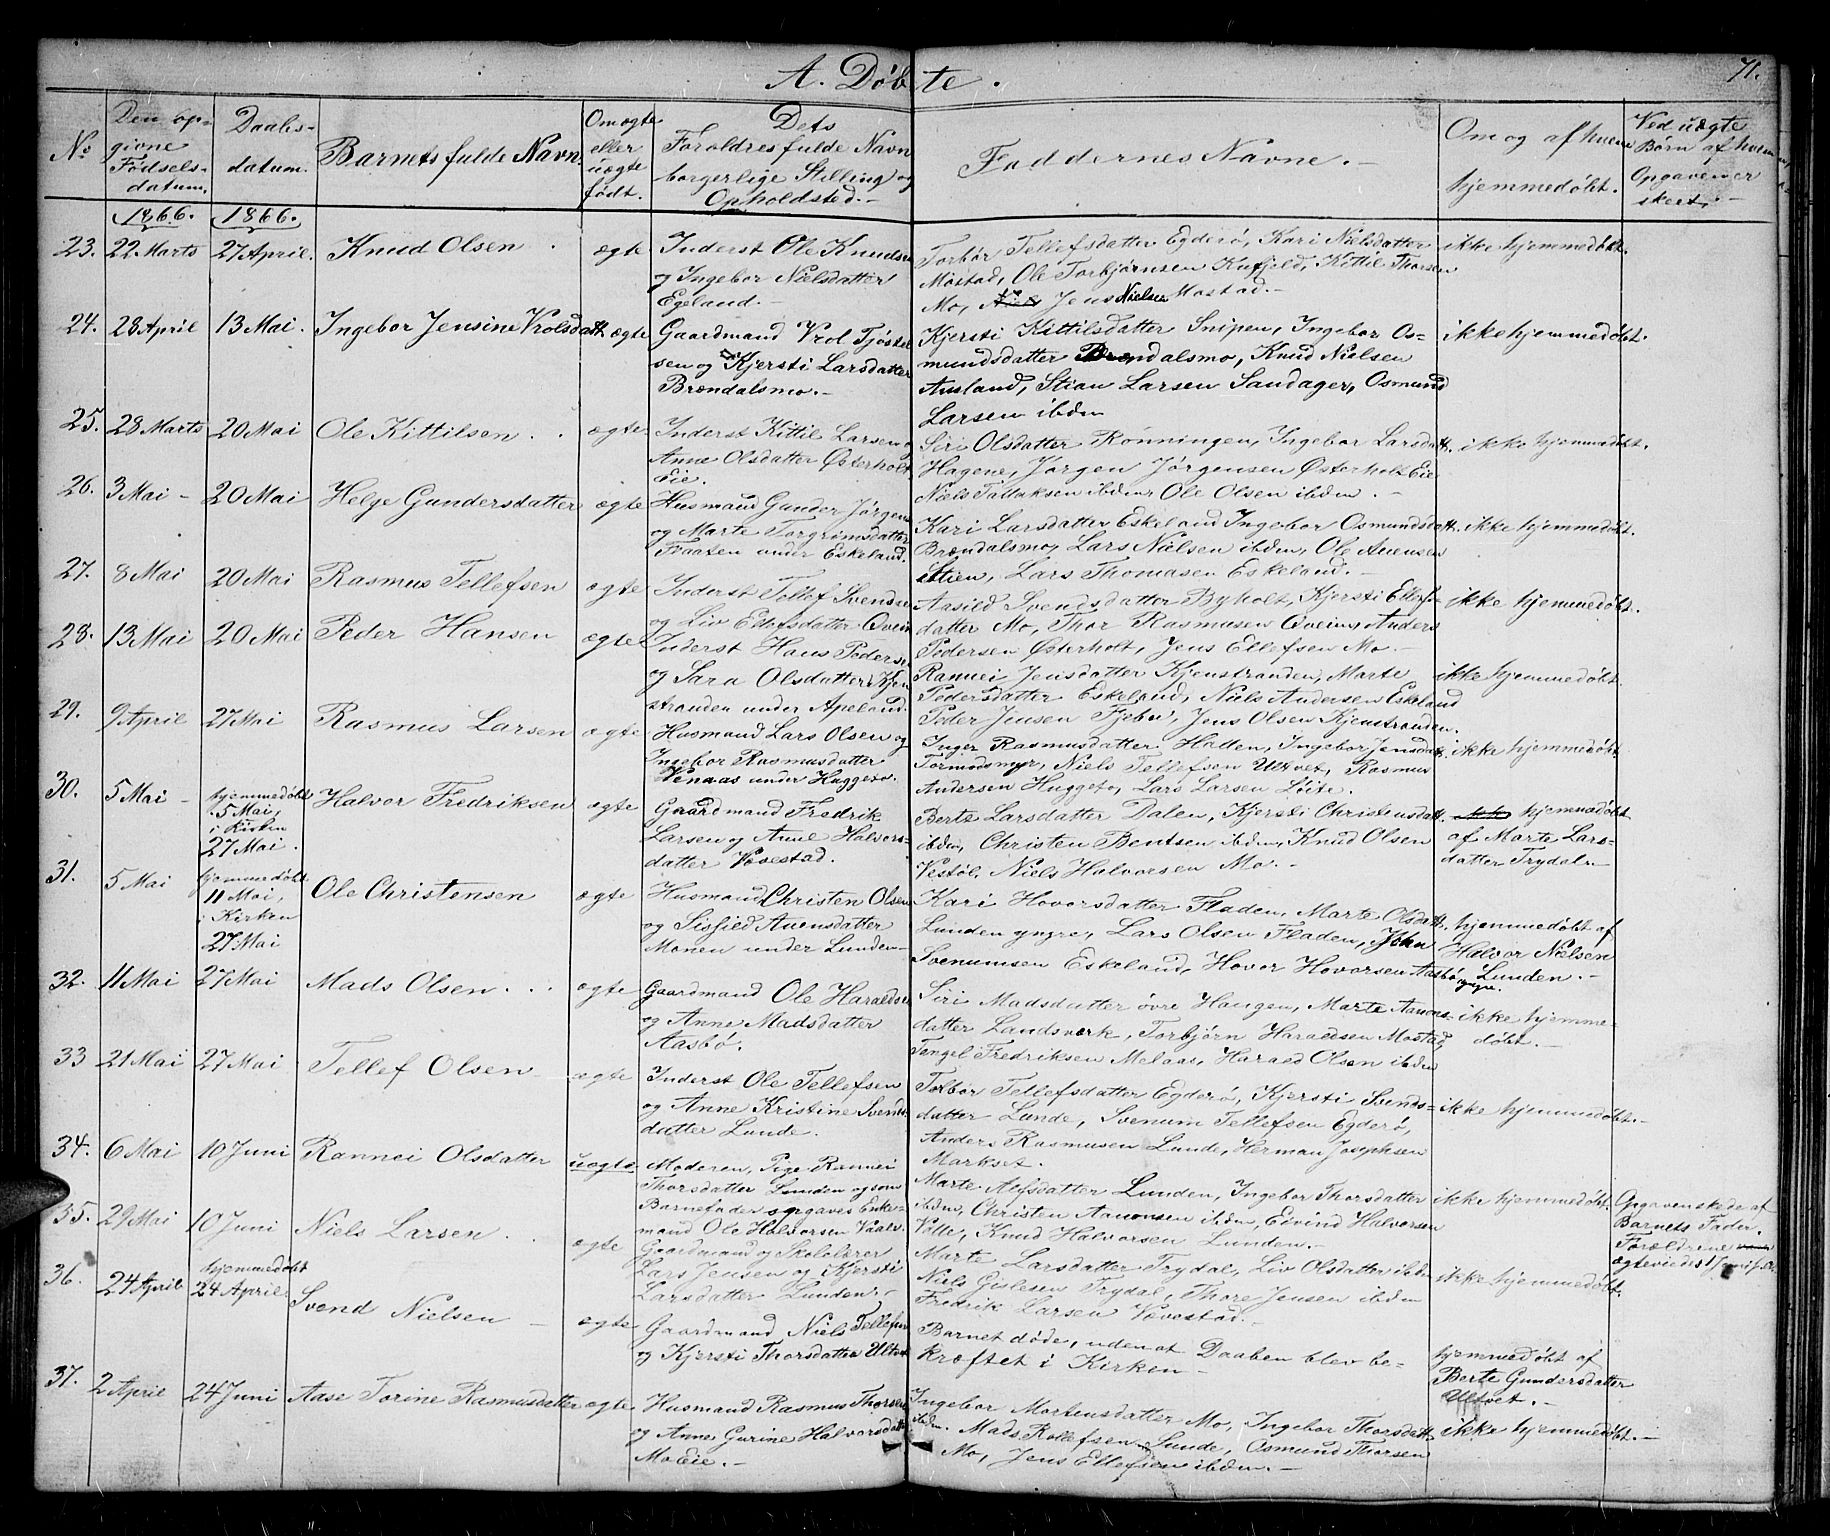 A. Döbte.
71.
No
Den op-
givne
Fødsels-
datum.
Daabs-
datum.
Barnets fulde Navn
Om ægte
eller
uægte
født.
Dets
Forældres fulde Navn
borgerlige Stilling og
Opholdsted.-
Faddernes Navne.-
Om og af hvem
hjemmedøbt.
Ved uægte
Børn af hvem
Opgaven er
skeet.-
1866. 1866.
23. 22 Marts 27 April. Knud Olsen ægte
Inderst Ole Knudsen
og Ingebor Nielsdatter
Egeland.-
Torbør Tellefsdatter Egderø, Kari Nielsdatter
Mostad, Ole Torbjørnsen Kufjeld, Kittil Thorsen
Mo, Jens Nielsen Mostad.-
ikke hjemmedøbt.
24. 28 April 13 Mai. Ingebor Jensine Vrolsdatt. ægte
Gaardmand Vrol Tjøstel
sen og Kjersti Larsdatter
Brændalsmo.-
Kjersti Kittilsdatter Snipen, Ingebor Os-
mundsdatter Brændalsmo, Knud Nielsen
Ausland, Stian Larsen Sandager, Osmund
Larsen ibden
ikke hjemmedøbt.
25. 28 Marts 20 Mai Ole Kittilsen ægte
Inderst Kittil Larsen og
Anne Olsdatter Østerholt
Eie.
Siri Olsdatter Rønningen, Ingebor Larsdatt.
Hagene, Jørgen Jørgensen Østerholt Eie
Niels Tallaksen ibden, Ole Olsen ibden.-
ikke hjemmedøbt.
26. 3 Mai - 20 Mai Helge Gundersdatter ægte
Husmand Gunder Jørgens
og Marte Torgrimsdatter
Fraaten under Eskeland.
Kari Larsdatter Eskeland Ingebor Osmundsdatt.
Brændalsmo, Lars Nielsen ibden, Ole Auensen
Stien, Lars Thomasen Eskeland.-
ikke hjemmedøbt.
27. 8 Mai 20 Mai Rasmus Tellefsen ægte
Inderst Tellef Svendsen
og Liv Ellefsdatter Qvein
Aasild Svendsdatter Byholt, Kjersti Ellefs-
datter Mo, Thor Rasmusen Qveim, Anders
Pedersen Østerholt, Jens Ellefsen Mo.-
ikke hjemmedøbt.
28. 13 Mai 20 Mai Peder Hansen ægte
Inderst Hans Pedersen
og Sara Olsdatter Kjen
stranden under Apeland.
Rannei Jensdatter Kjenstranden, Marte
Pedersdatter Eskeland, Niels Andersen Eskeland
Peder Jensen Fjebu, Jens Olsen Kjenstranden.
ikke hjemmedøbt.
29. 9 April 27 Mai Rasmus Larsen ægte
Husmand Lars Olsen og
Ingebor Rasmusdatter
Venaas under Huggeto.
Inger Rasmusdatter Hatten, Ingebor Jensdatt.
Tormodsmyr, Niels Tellefsen Ultvet, Rasmus
Andersen Huggeto, Lars Larsen Løite.
ikke hjemmedøbt
30. 5 Mai - hjemmedøbt
5 Mai,
i Kirken
27 Mai.
Halvor Fredriksen ægte
Gaardmand Fredrik
Larsen og Anne Halvors-
datter Vovestad.
Berte Larsdatter Dalen, Kjersti Christensdatt.
ibden, Christen Bentsen ibden, Knud Olsen
Vestøl, Niels Halvorsen Mo.-
hjemmedøbt
af Marte Lars-
datter Trydal.-
31. 5 Mai hjemmedøbt
11 Mai,
i Kirken
27 Mai
Ole Christensen ægte
Husmand Christen Olsen
og Sisfied Auensdatter
Monen under Lunden-
Kari Hovorsdatter Fladen, Marte Olsdatt.
Lunden yngre, Lars Olsen Fladen, John
Svenumsen Eskeland, Hovor Hovorsen Aasbø yngre.
hjemmedøbt af
Halvor Nielsen
Lunden.-
32. 11 Mai 27 Mai Mads Olsen ægte
Gaardmand Ole Haraldse
og Anne Madsdatter
Aasbø.
Siri Madsdatter øvre Haugen, Marte Aanons-
datter Landsverk, Torbjørn Haraldsen Mostad,
Tengel Fredriksen Melaas, Harald Olsen ibden
ikke hjemme-
døbt.-
33 21 Mai 27 Mai Tellef Olsen ægte
Inderst Ole Tellefsen
og Anne Kristine Svends
datter Lunde.
Torbør Tellefsdatter Egderø, Kjersti Svends-
datter Lunde, Svenum Tellefsen Egderø,
Anders Rasmusen Lunde, Herman Josephsen
Markset.
ikke hjemmedøbt.-
34. 6 Mai 10 Juni Rannei Olsdatter uægte
Moderen, Pige Rannei
Thorsdatter Lunden og som
Barnefader opgaves Enke-
mand Ole Halvorsen Vaalv.
Marte Alfsdatter Lunden, Ingebor Thorsdatter
ibden, Christen Aanonsen ibden, Eivind Halvorsen
Ville, Knud Halvorsen Lunden.-
ikke hjemmedøbt.
Opgaven skede af
Barnets Fader.
Forældrene
ægteviedes 1 Juni
35. 29 Mai 10 Juni Niels Larsen ægte
Gaardmand og Skolelærer
Lars Jensen og Kjersti
Larsdatter Lunden.-
Marte Larsdatter Trydal, Liv Olsdatter ibden
Niels Gislesen Trydal, Thore Jensen ibden
Fredrik Larsen Vovestad.-
ikke hjemmedøbt.
36. 24 April hjemmedøbt
24 April.
Svend Nielsen - ægte
Gaardmand Niels Tellefsen
og Kjersti Thorsdatter Ultvet
Barnet døde, uden at Daaben blev be-
kræftet i Kirken-
hjemmedøbt af
Berte Gundersdatter
Ultvet.-
37. 2 April 24 Juni Aase Torine Rasmusdatter ægte
Husmand Rasmus Thorsen
og Anne Gurine Halvorsdatt
Mo Eie.-
Ingebor Mortensdatter Mo, Ingebor Thorsdatt.
ibden. Mads Rollefsen Lunde, Osmund Thorsen
Mo, Jens Ellefsen ibden.-
ikke hjemmedøbt.-